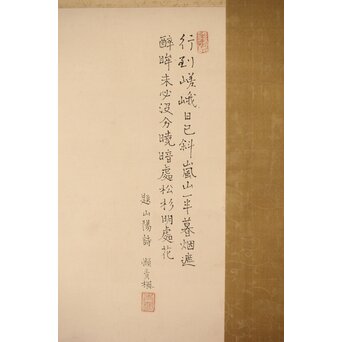 行到嵯峨日已斜嵐山一半暮烟遮
醉眸未必没分曉暗處松杉明處花
題山陽詩